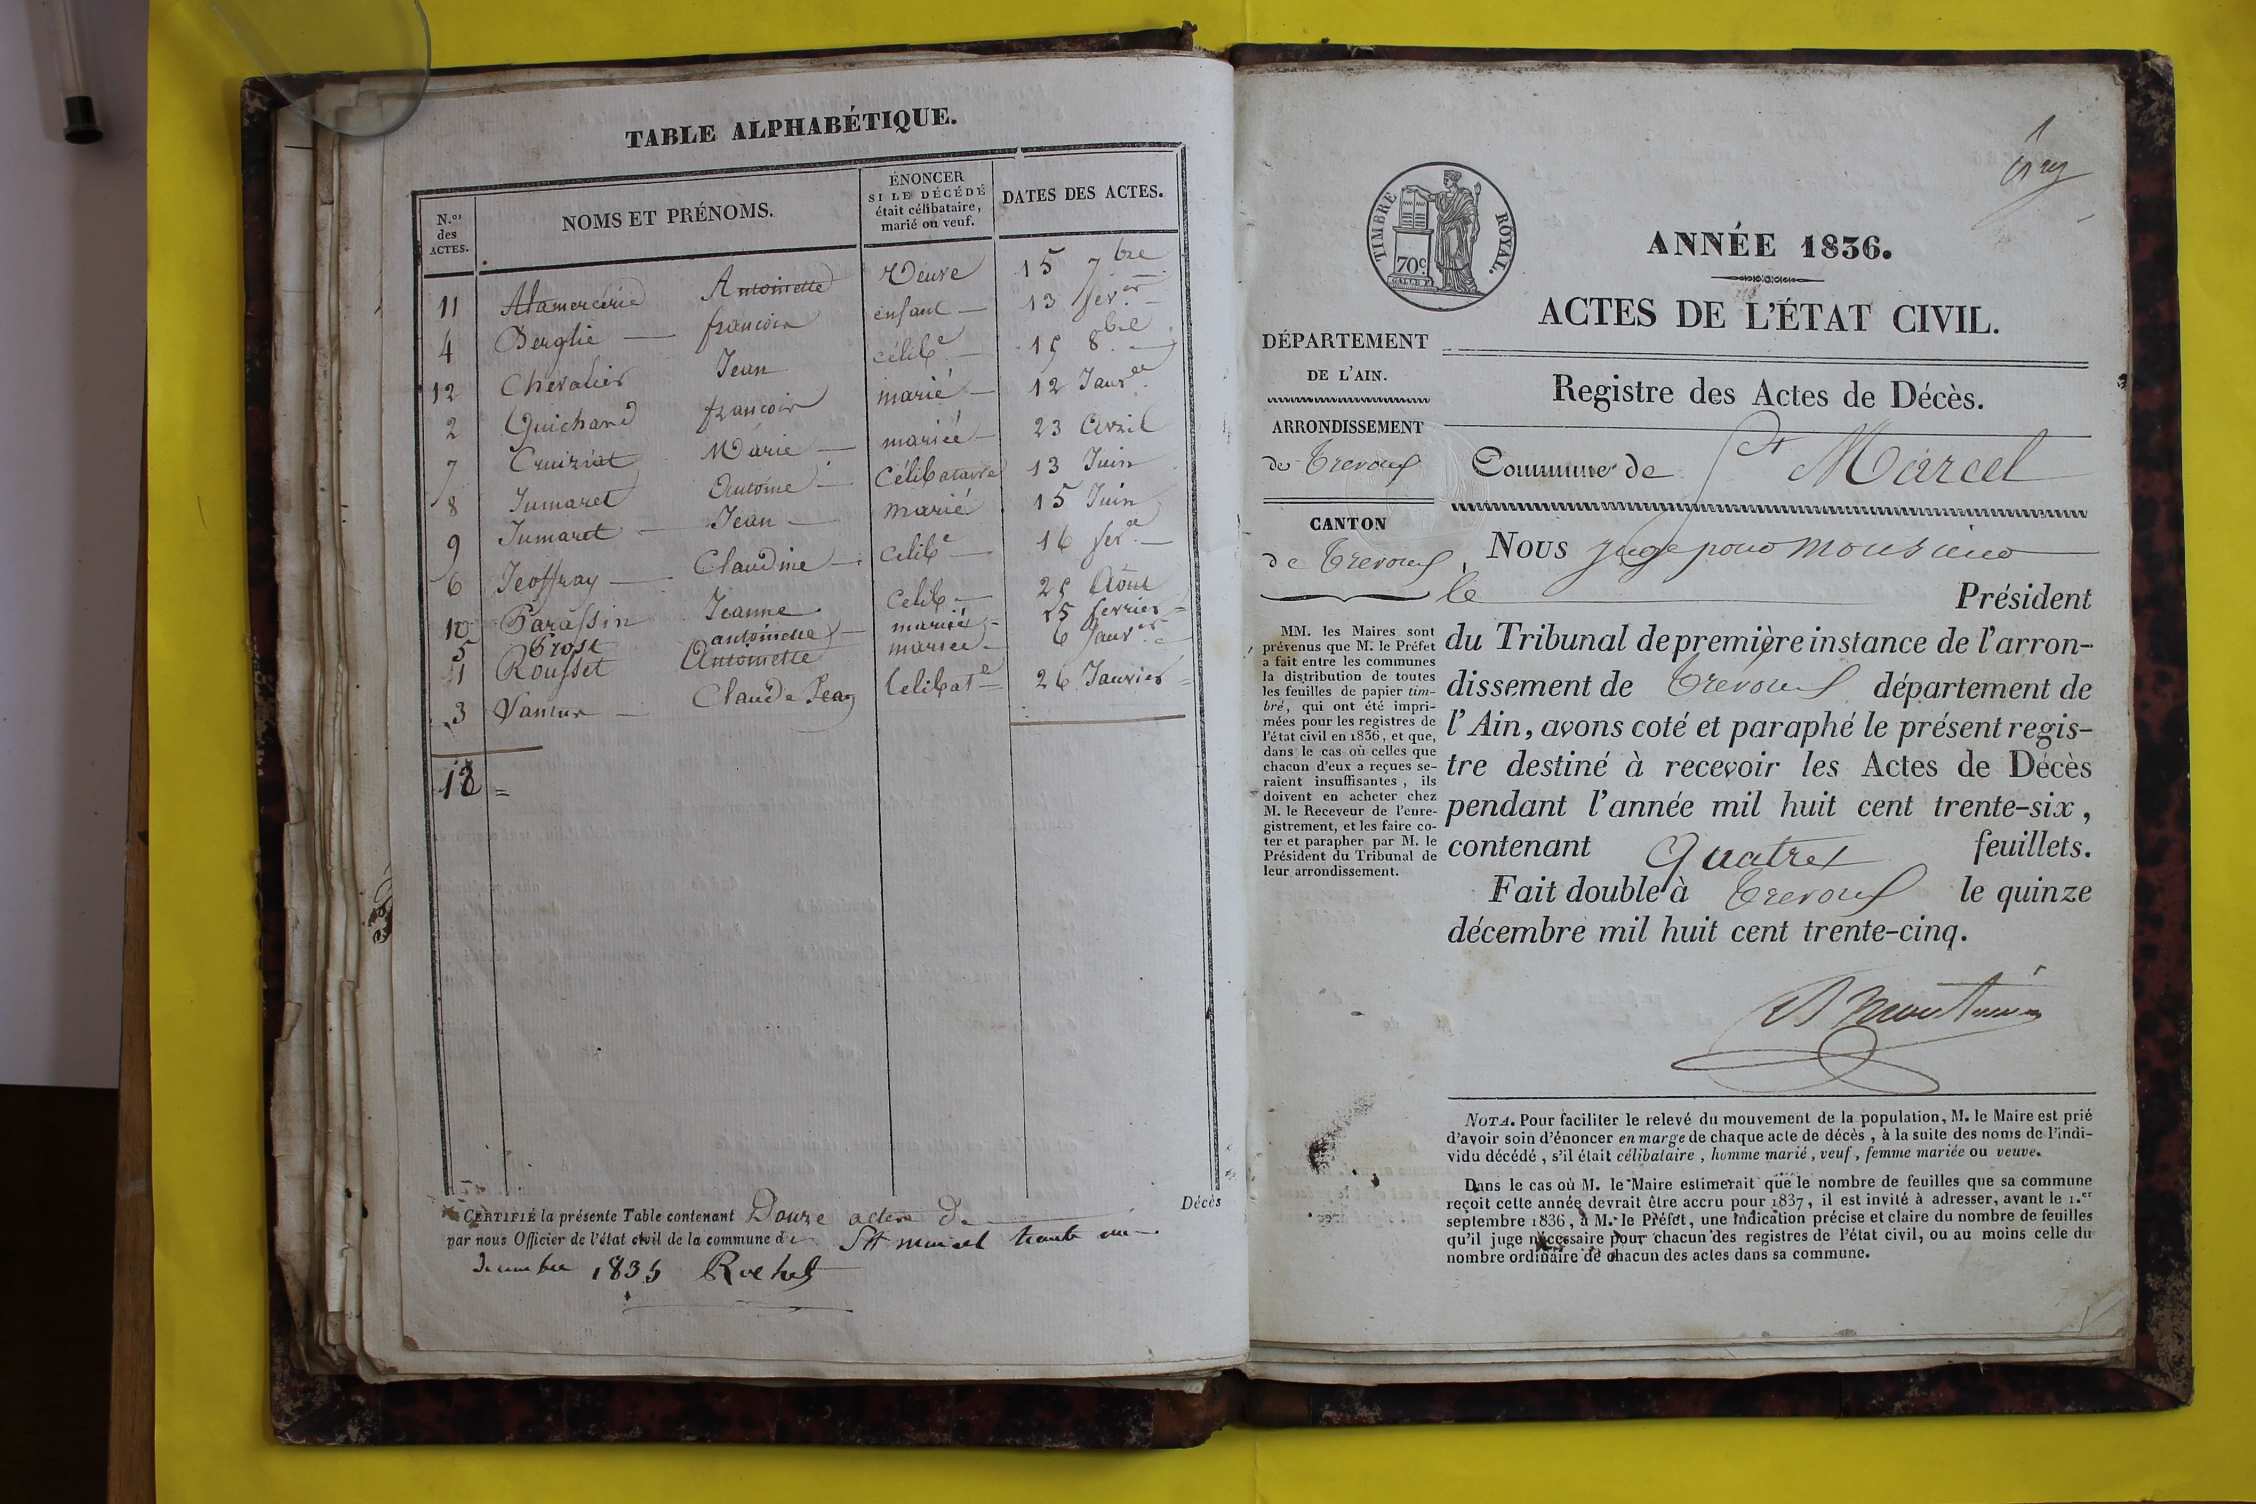 TABLE ALPHABÉTIQUE.
N.os des ACTES.
NOMS ET PRÉNOMS.
ÉNONCER
SI LE DÉCÉDÉ
était célibataire,
marié ou veuf.
DATES DES ACTES.
11 Antoinette Veuve 15 7bre
4 françois enfant 13 fevr
12 Chevalier Jean célibe 15 8bre
2 Guichard françois marié 12 Janver
7 Cruiziat Marie mariée 23 Avril
8 Jumaret Antoine Célibataire 13 Juin
9 Jumaret Jean marié 15 Juin
6 Jeoffray Claudine célibe 16 fer
10 Parassin Jeanne Celib 25 Août
5 Prost antoinette mariée 15 fevrier
1 Rousset Antoinette mariée 6 Janver
3 Claude Jean Celibate 26 Janvier
12
CERTIFIÉ la présente Table contenant Douze actes de Décès
par nous Officier de l'état civil de la commune de St marcel trente un
decembre 1835 Rochet
1
TIMBRE ROYAL.
70c
ANNÉE 1836.
ACTES DE L'ÉTAT CIVIL.
DÉPARTEMENT
DE L'AIN.
ARRONDISSEMENT
de Trevoux
CANTON
de Trevoux
MM. les Maires sont
prévenus que M. le Préfet
a fait entre les communes
la distribution de toutes
les feuilles de papier tim-
bré, qui ont été impri-
mées pour les registres de
l'état civil en 1836, et que,
dans le cas où celles que
chacun d'eux a reçues se-
raient insuffisantes, ils
doivent en acheter chez
M. le Receveur de l'enre-
gistrement, et les faire co-
ter et parapher par M. le
Président du Tribunal de
leur arrondissement.
Registre des Actes de Décès.
Commune de St Marcel
Nous juge pour monsieur
le Président
du Tribunal de première instance de l'arron-
dissement de Trevoux département de
l'Ain, avons coté et paraphé le présent regis-
tre destiné à recevoir les Actes de Décès
pendant l'année mil huit cent trente-six,
contenant quatre feuillets.
Fait double à Trevoux le quinze
décembre mil huit cent trente-cinq.
NOTA. Pour faciliter le relevé du mouvement de la population, M. le Maire est prié
d'avoir soin d'énoncer en marge de chaque acte de décès, à la suite des noms de l'indi-
vidu décédé, s'il était célibataire, homme marié, veuf, femme mariée ou veuve.
Dans le cas où M. le Maire estimerait que le nombre de feuilles que sa commune
reçoit cette année devrait être accru pour 1837, il est invité à adresser, avant le 1.er
septembre 1836, à M. le Préfet, une indication précise et claire du nombre de feuilles
qu'il juge nécessaire pour chacun des registres de l'état civil, ou au moins celle du
nombre ordinaire de chacun des actes dans sa commune.